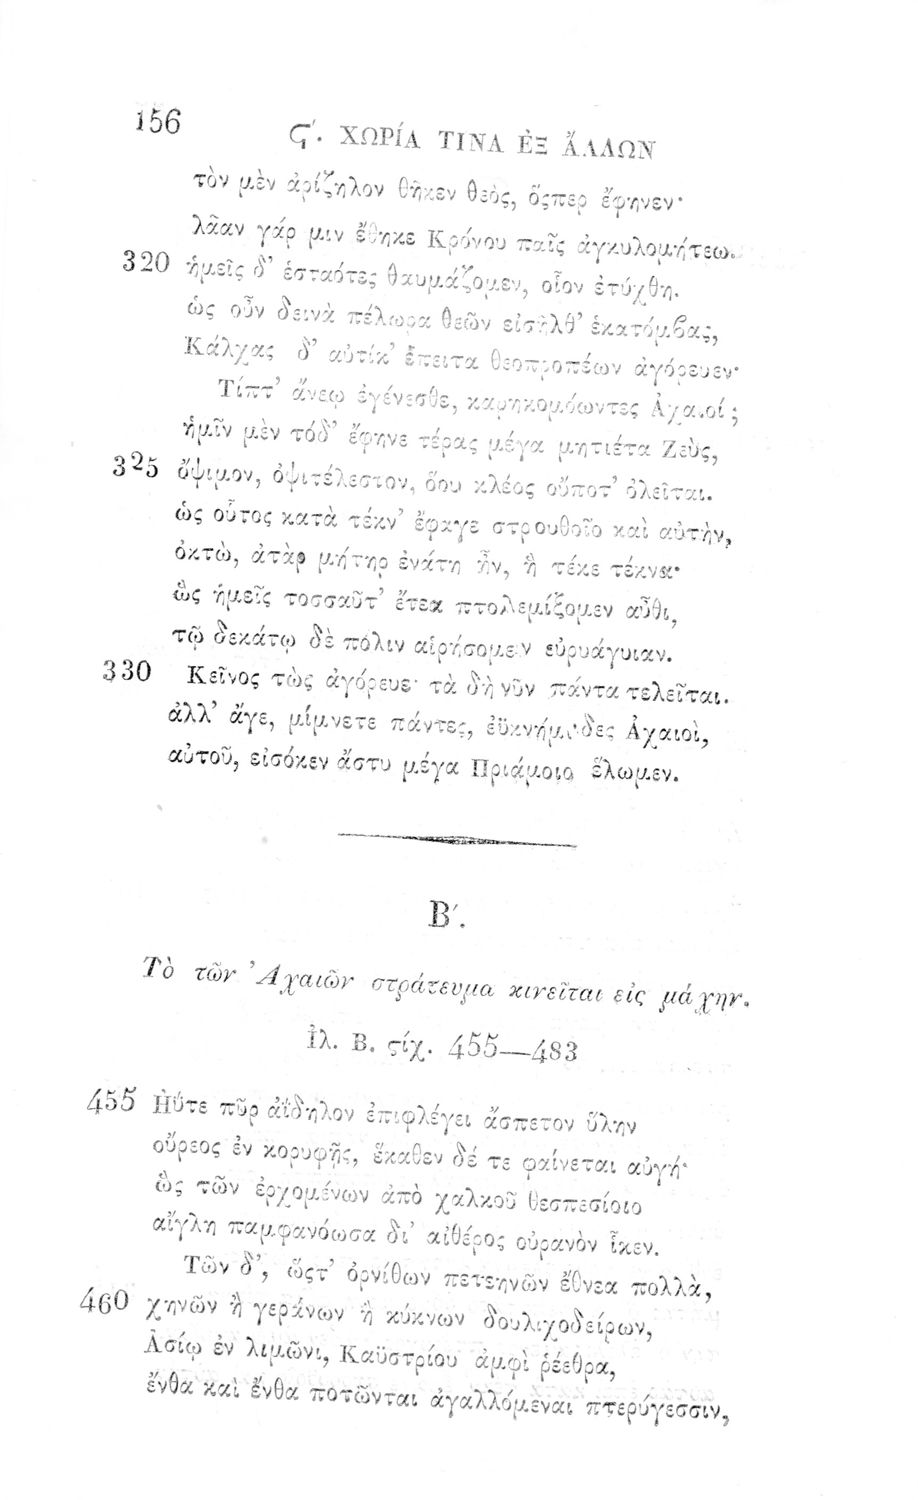 156
Ϛ΄. ΧΩΡΊΑ ΤΙΝΑ ἘΞ ἌΛΛΩΝ
τὸν μὲν ἀρίζηλον θῆκεν θεὸς, ὅςπερ ἔφηνεν·
λᾶαν γάρ μιν ἔθηκε Κρόνου παῖς ἀγκυλομήτεω.
320 ἡμεῖς δ’ ἑσταότες θαυμάζομεν, οἷον ἐτύχθη.
ὡς οὖν δεινὰ πέλωρα θεῶν εἰσῆλθ’ ἑκατόμβας,
Κάλχας δ’ αὐτίκ’ ἔπειτα θεοπροπέων ἀγόρευεν·
Τίπτ’ ἄνεῳ ἐγένεσθε, καρηκομόωντες Ἀχαιοί;
ἡμῖν μὲν τόδ’ ἔφηνε τέρας μέγα μητιέτα Ζεὺς,
325 ὄψιμον, ὀψιτέλεστον, ὅου κλέος οὔποτ’ ὀλεῖται.
ὡς οὗτος κατὰ τέκν’ ἔφαγε στρουθοῖο καὶ αὐτὴν,
ὀκτὼ, ἀτὰρ μήτηρ ἐνάτη ἦν, ἣ τέκε τέκνα·
ὣς ἡμεῖς τοσσαῦτ’ ἔτεα πτολεμίξομεν αὖθι,
τῷ δεκάτῳ δὲ πόλιν αἱρήσομεν εὐρυάγυιαν.
330 Κεῖνος τὼς ἀγόρευε· τὰ δὴ νῦν πάντα τελεῖται.
ἀλλ’ ἄγε, μίμνετε πάντες, ἐϋκνήμιδες Ἀχαιοὶ,
αὐτοῦ, εἰσόκεν ἄστυ μέγα Πριάμοιο ἕλωμεν.
Β΄.
Τὸ τῶν Ἀχαιῶν στράτευμα κινεῖται εἰς μάχην.
Ἰλ. Β. ϛίχ. 455—483
455 Ἠΰτε πῦρ ἀΐδηλον ἐπιφλέγει ἄσπετον ὕλην
οὔρεος ἐν κορυφῇς, ἕκαθεν δέ τε φαίνεται αὐγή·
ὣς τῶν ἐρχομένων ἀπὸ χαλκοῦ θεσπεσίοιο
αἴγλη παμφανόωσα δι’ αἰθέρος οὐρανὸν ἷκεν.
Τῶν δ’, ὥςτ’ ὀρνίθων πετεηνῶν ἔθνεα πολλὰ,
460 χηνῶν ἢ γεράνων ἢ κύκνων δουλιχοδείρων,
Ἀσίῳ ἐν λιμῶνι, Καϋστρίου ἀμφὶ ῥέεθρα,
ἔνθα καὶ ἔνθα ποτῶνται ἀγαλλόμεναι πτερύγεσσιν,